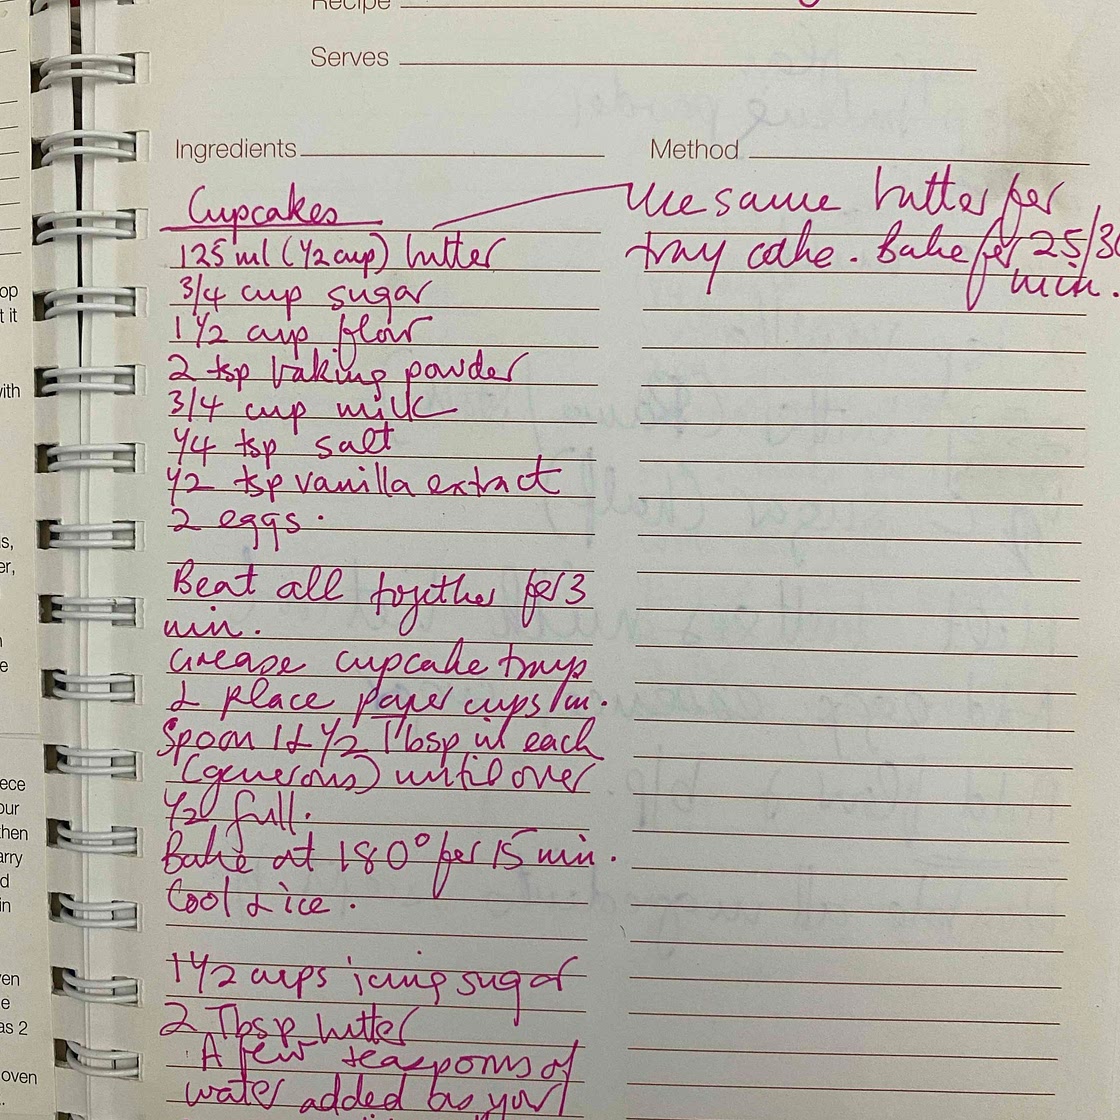 Recipe
Serves
Ingredients
Method
Cupcakes
125 ml (1/2 cup) butter
3/4 cup sugar
1 1/2 cup flour
2 tsp baking powder
3/4 cup milk
1/4 tsp salt
1/2 tsp vanilla extract
2 eggs.
Beat all together for 3
min.
Grease cupcake trays
& place paper cups in.
Spoon 1 & 1/2 Tbsp in each
(generous) until over
1/2 full.
Bake at 180° for 15 min.
Cool & ice.
1 1/2 cups icing sugar
2 Tbsp butter
A few teaspoons of
water added as you
Use same batter for
tray cake. Bake for 25/30
min.
op
t it
with
s,
er,
e
ece
our
then
arry
d
in
ven
e
as 2
oven